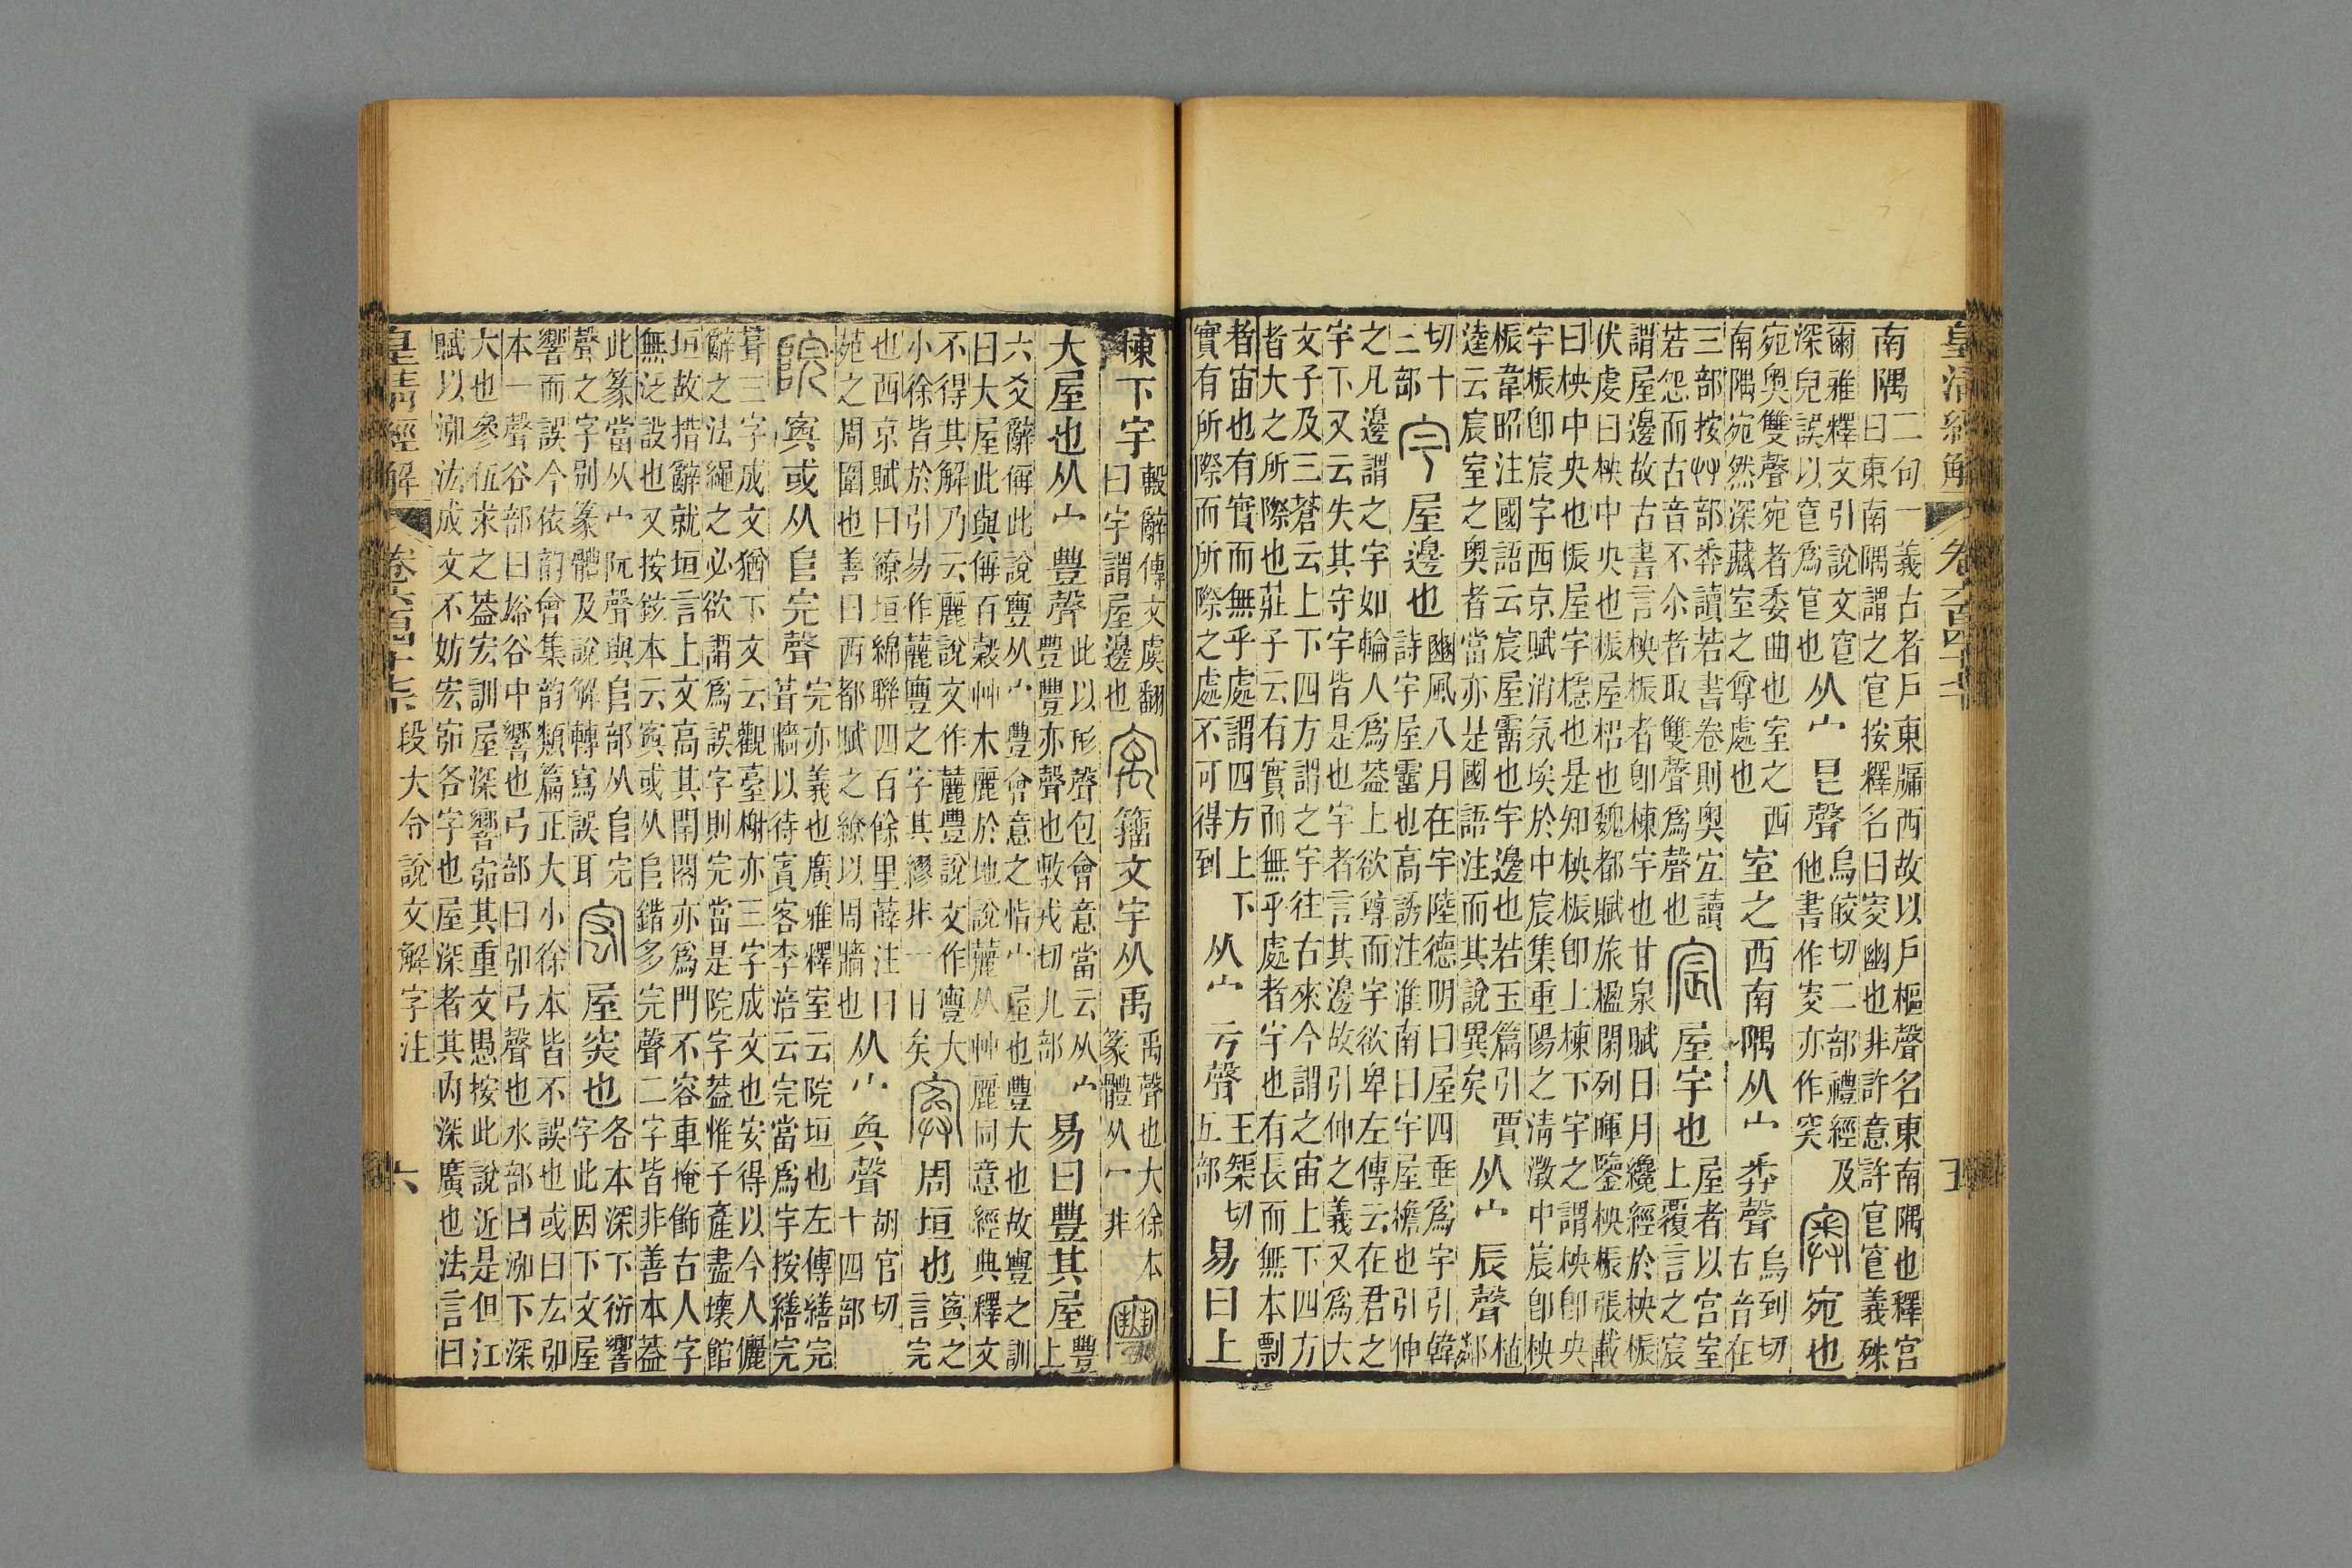 皇清經解 卷六百四十七 五
南隅二句一義古者戶東牖西故以戶樞聲名東南隅也釋宮
曰東南隅謂之㝔按釋名曰㝔幽也非許意許㝔窅義殊
爾雅釋文引說文窅
深皃誤以窅爲㝔也从宀㫐聲烏皎切二部禮經及
他書作㝔亦作突宛也
宛奥雙聲宛者委曲也室之西
南隅宛然深藏室之尊處也室之西南隅从宀𢍏聲烏到切
古音在
三部按艸部𢍏讀若書卷則奥宜讀
若怨而古音不尒者取雙聲爲聲也宸屋宇也屋者以宮室
上覆言之宸
謂屋邊故古書言柍桭者卽棟宇也甘泉賦日月纔經於柍桭
伏虔曰柍中央也桭屋梠也魏都賦旅楹閑列暉鑒柍桭張載
曰柍中央也桭屋宇檼也是知柍桭卽上棟下宇之謂柍卽央
字桭卽宸字西京賦消氛埃於中宸集重陽之淸澂中宸卽柍
桭韋昭注國語云宸屋霤也宇邊也若玉篇引賈
逵云宸室之奧者當亦是國語注而其說異矣从宀辰聲植
鄰
切十
三部宇屋邊也豳風八月在宇陸德明曰屋四垂爲宇引韓
詩宇屋霤也高誘注淮南曰宇屋檐也引伸
之凡邊謂之宇如輪人爲葢上欲尊而宇欲卑左傳云在君之
宇下又云失其守宇皆是也宇者言其邊故引伸之義又爲大
文子及三蒼云上下四方謂之宇往古來今謂之宙上下四方
者大之所際也莊子云有實而無乎處者宇也有長而無本剽
者宙也有實而無乎處謂四方上下
實有所際而所際之處不可得到从宀亏聲王榘切
五部易曰上
棟下宇繫辭傳文虞翻
曰宇謂屋邊也㝢籒文宇从禹禹聲也大徐本
篆體从宀非寷
大屋也从宀豐聲此以形聲包會意當云从宀
豐豐亦聲也敷戎切九部易曰豐其屋豐
上
六爻辭偁此說寷从宀豐會意之恉宀屋也豐大也故寷之訓
曰大屋此與偁百穀艸木麗於地說䕻从艸麗同意經典釋文
不得其解乃云麗說文作䕻豐說文作寷大
小徐皆於引易作䕻寷之字其繆非一日矣寏周垣也寏之
言完
也西京賦曰繚垣綿聯四百餘里薛注曰
苑之周圍也善曰西都賦之繚以周牆也从宀奐聲胡官切
十四部
院寏或从𨸏完聲完亦義也廣雅釋室云院垣也左傳繕完
葺牆以待賓客李涪云完當爲宇按繕完
葺三字成文猶下文云觀臺榭亦三字成文也安得以今人儷
辭之法繩之必欲謂爲誤字則完當是院字葢惟子產盡壞館
垣故措辭就垣言上文高其閈閎亦爲門不容車掩飾古人字
無泛設也又按鉉本云寏或从𨸏鍇多完聲二字皆非善本葢
此篆當从宀阮聲與𨸏部从𨸏完
聲之字別篆體及說解轉寫誤耳宏屋深也各本深下衍響
字此因下文屋
響而誤今依韵會集韵類篇正大小徐本皆不誤也或曰厷弘
本一聲谷部曰谹谷中響也弓部曰弘弓聲也水部曰泓下深
大也參伍求之葢宏訓屋深響宖其重文愚按此說近是但江
賦以泓汯成文不妨宏宖各字也屋深者其內深廣也法言曰
皇清經解 卷六百四十七 段大令說文解字注 六